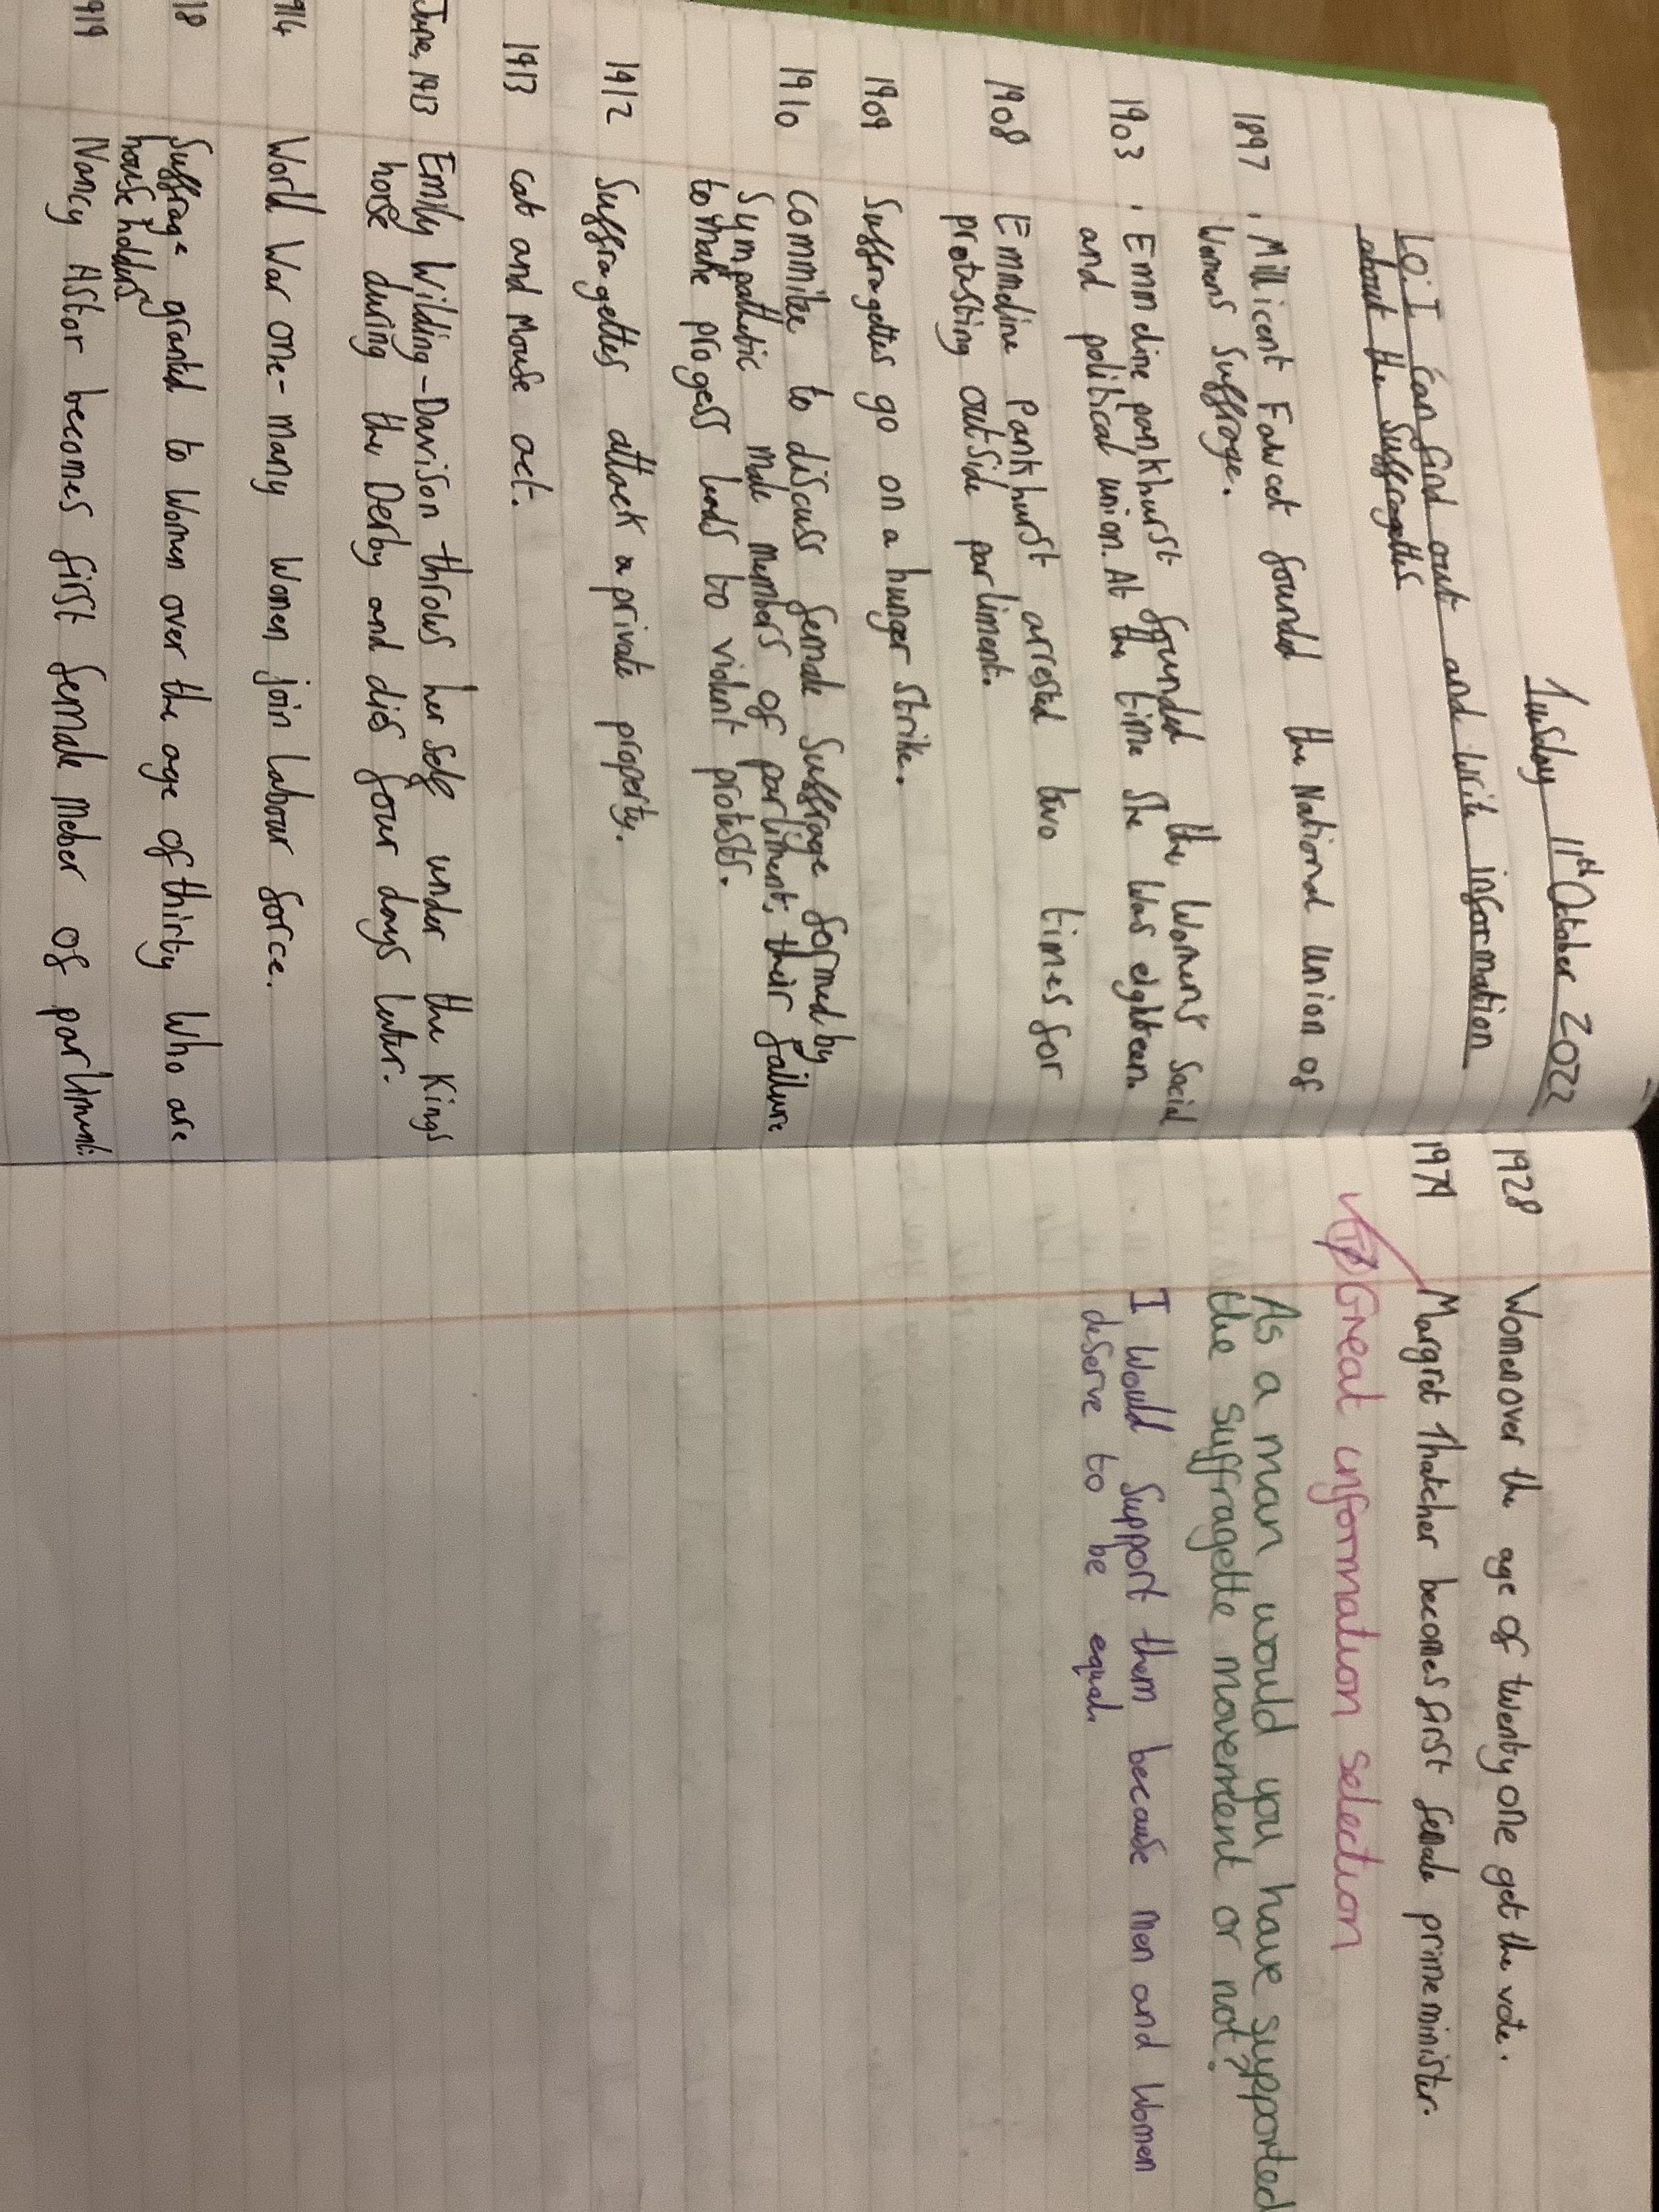 Tuesday 11th October 2022
LO: I can find out and write information
about the Suffragettes
1897 . Millicent Fawcet founded the National union of
Womens Suffrage.
1903 . Emmeline pankhurst founded the Womens Social
and political union. At the time she was eighteen.
1908 Emmeline Pankhurst arrested two times for
protesting outside parliment.
1909 Suffragettes go on a hunger strike.
1910 Commitee to discuss female suffrage formed by
Sympathetic male members of parliment; their failure
to make progess leads to violent protests.
1912 Suffragettes attack a private property.
1913 cat and Mouse act.
June, 1913 Emily Wilding-Davison throws her self under the Kings
horse during the Derby and dies four days later.
914 World War one- many Women join labour force.
18 Suffrage granted to Women over the age of thirty Who are
householders
919 Nancy Astor becomes first female Meber of parliment.
1928 Women over the age of twenty one get the vote.
1979 Margret Thatcher becomes first female prime minister.
Great information selection
As a man would you have supported
the suffragette movement or not?
I Would Support them because men and Women
deserve to be equal.